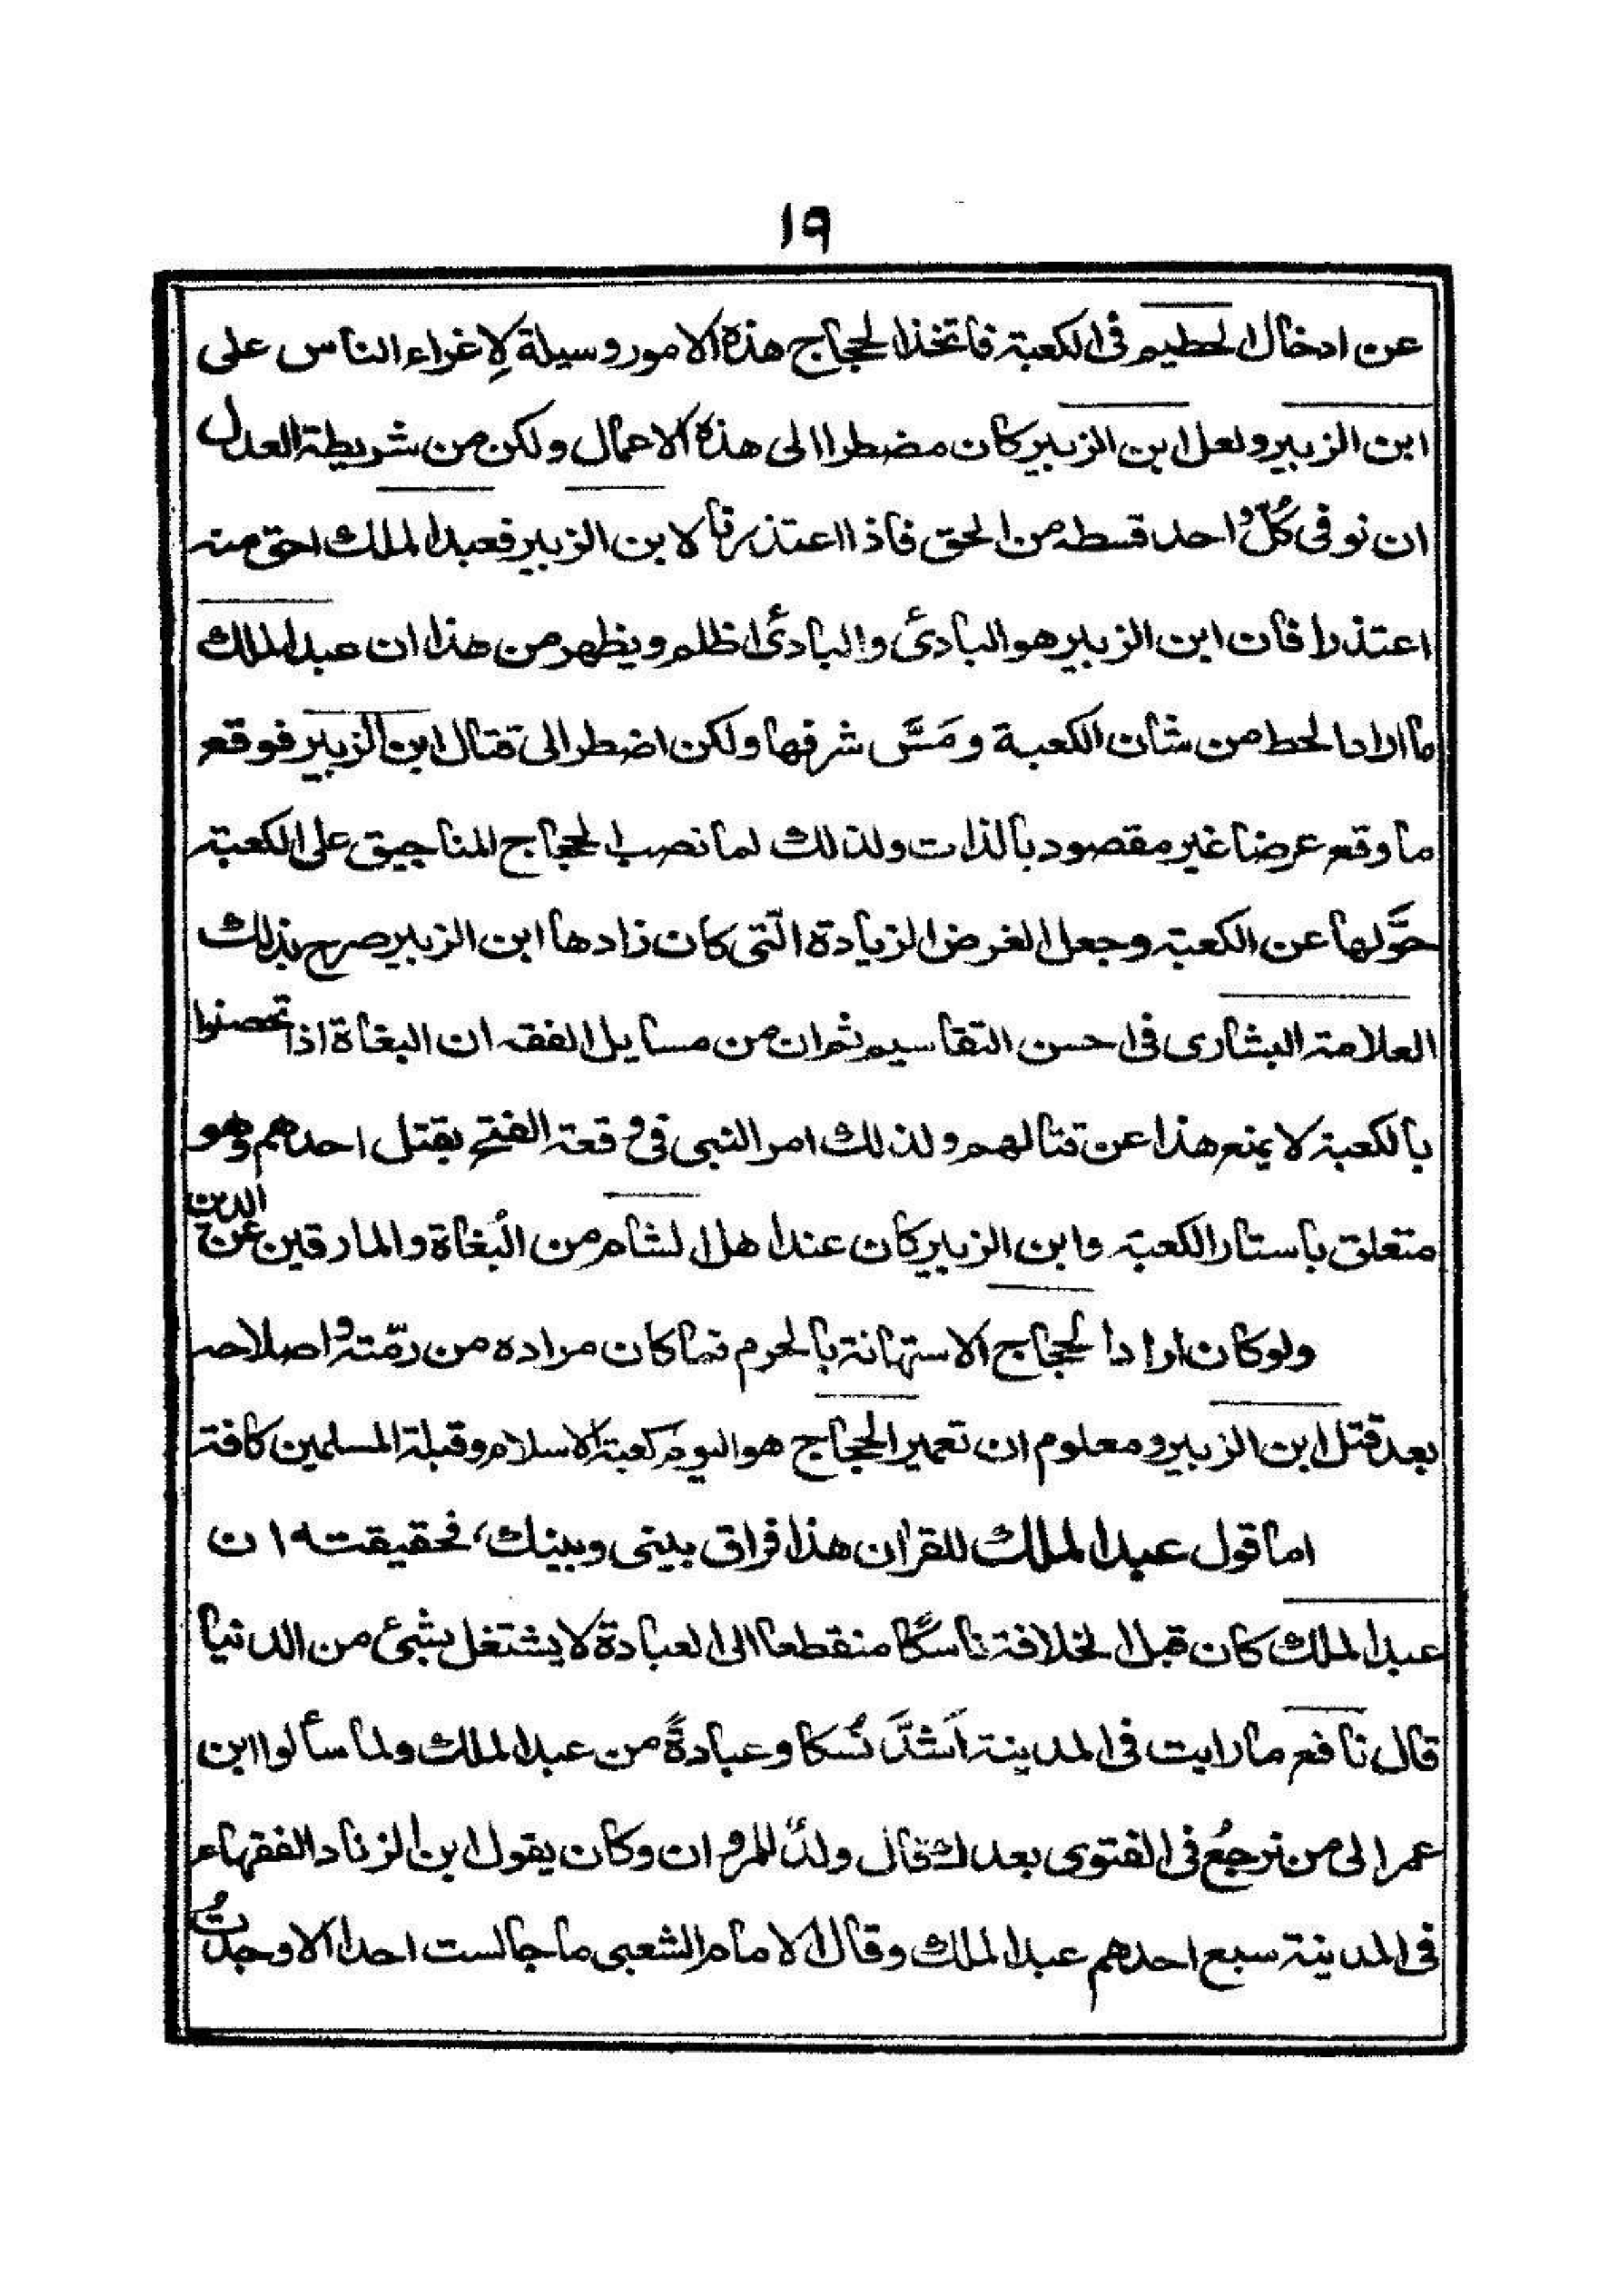 ١٩
عن ادخال الحطيم فى الكعبة فاتخذ الحجاج هذه الامور وسيلة لِاغراء الناس على
ابن الزبير ولعل ابن الزبير كان مضطرا الى هذه الاعمال ولكن من شريطة العدل
ان نوفى كُلَّ واحد قسطه من الحق فاذا اعتذرنا لابن الزبير فعبد الملك احق منه
اعتذرا فان ابن الزبير هو البادئ والبادئ اظلم ويظهر من هذا ان عبد الملك
ما اراد الحط من شان الكعبة ومَسَّ شرفها ولكن اضطر الى قتال ابن الزبير فوقع
ما وقع عرضا غير مقصود بالذات ولذلك لما نصب الحجاج المناجيق على الكعبة
حوَّلها عن الكعبة وجعل الغرض الزيادة الّتى كان زادها ابن الزبير صرح بذلك
العلامة البشارى فى احسن التقاسيم ثم ان من مسايل الفقه ان البغاة اذا تحصنوا
بالكعبة لا يمنع هذا عن قتالهم ولذلك امر النبى فى وقعة الفتح بقتل احدهم وهو
متعلق باستار الكعبة وابن الزبير كان عند اهل الشام من الُبغاة والمارقين عن الدين
ولو كان اراد الحجاج الاستهانة بالحرم فما كان مراده من رمّته واصلاحه
بعد قتل ابن الزبير ومعلوم ان تعمير الحجاج هو اليوم كعبة الاسلام وقبلة المسلمين كافة
اما قول عبد الملك للقران هذا فراق بينى وبينك، فحقيقته ان
عبد الملك كان قبل الخلافة ناسگا منقطعا الى العبادة لا يشتغل بشئ من الدنيا
قال نافع ما رايت فى المدينة اَشدَّ نُسكا وعبادةً من عبد الملك ولما سألوا ابن
عمر الى من نرجعُ فى الفتوى بعدك قال ولدٌ للمروان وكان يقول ابن الزناد الفقهاء
فى المدينة سبع احدهم عبد الملك وقال الامام الشعبى ما جالست احدا الا وجدتُ